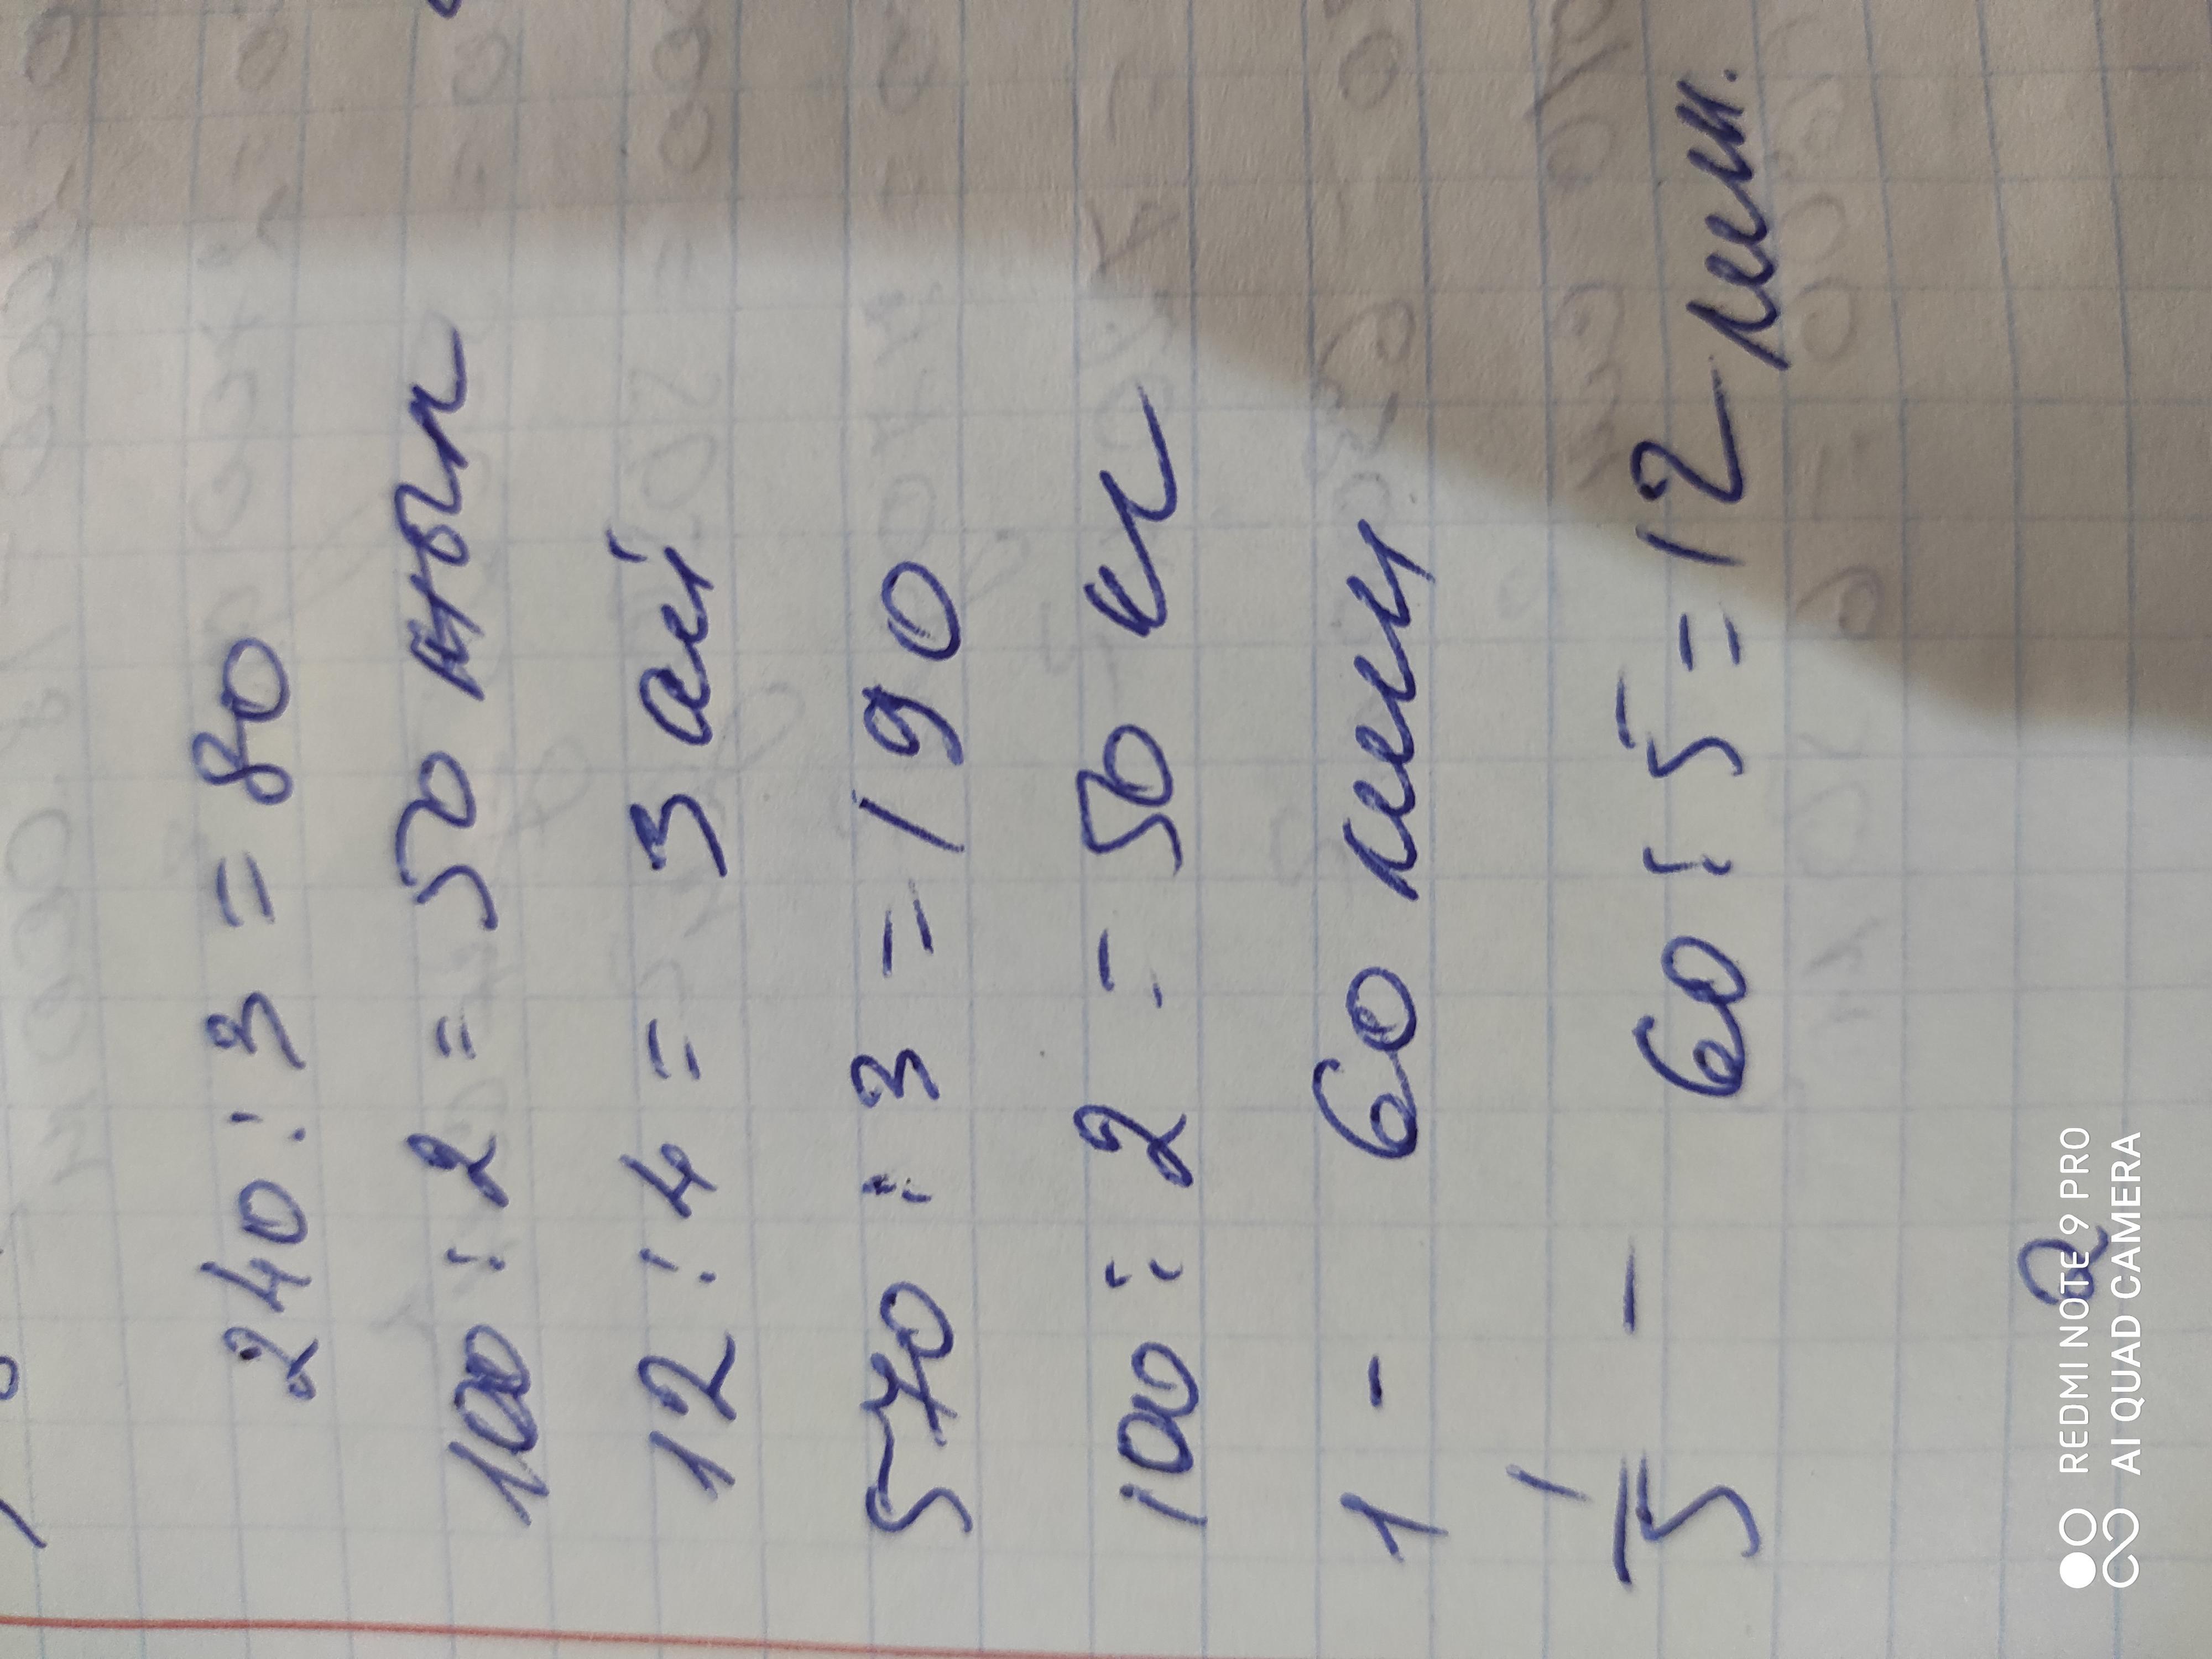 240 : 3 = 80
100 : 2 = 50 жыл
12 : 4 = 3 ай
570 : 3 = 190
100 : 2 = 50 кг
1 - 60 мин
1/5 - 60 : 5 = 12 мин.
REDMI NOTE 9 PRO
AI QUAD CAMERA